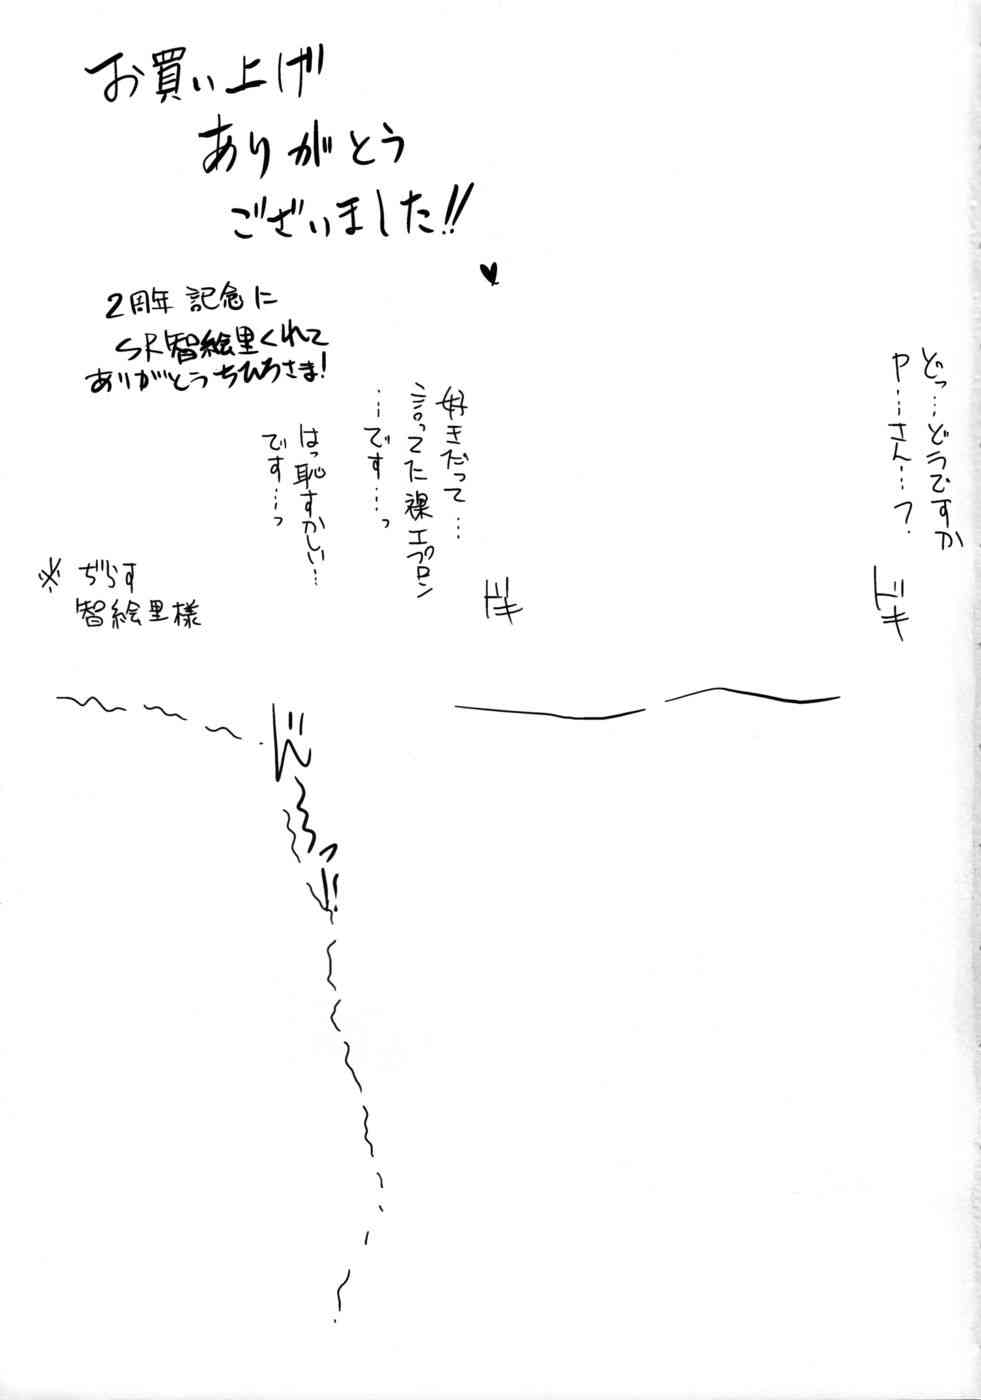 お買い上げ
ありがとう
ございました!!
2周年記念に
SR智絵里くれて
ありがとうちひろさま!
どっ…どうですか
P…さん…?
ドキ
好きだって…
言ってた裸エプロン
…です…っ
はっ恥ずかしい…
です…っ
ドキ
※ぢらす
智絵里様